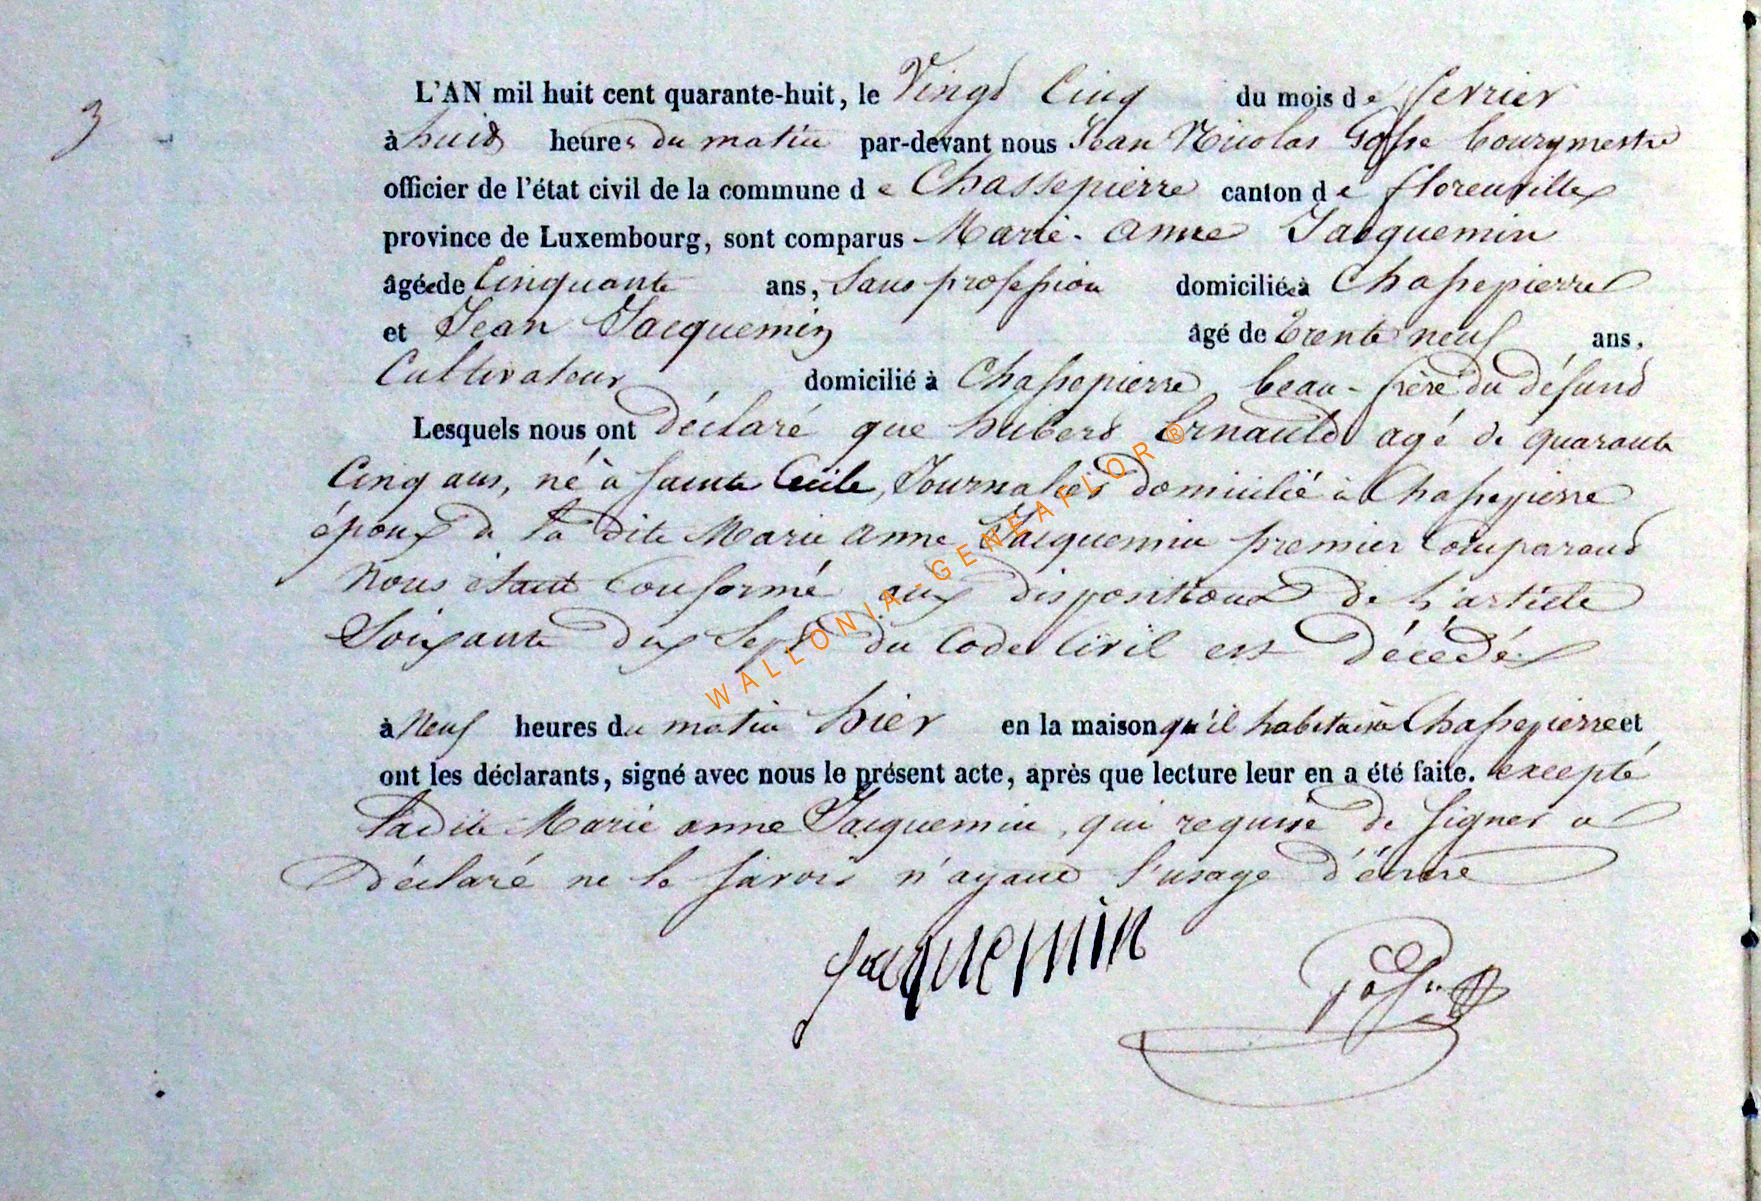 3
L'AN mil huit cent quarante-huit, le Vingt Cinq du mois de fevrier
à huit heures du matin par-devant nous Jean Nicolas Gosse bourgmestre
officier de l'état civil de la commune de Chassepierre canton de florenville
province de Luxembourg, sont comparus Marie-anne Jacquemin
âgée de Cinquante ans, Sans profession domiciliée à Chassepierre
et Jean Jacquemin âgé de trente neuf ans,
Cultivateur domicilié à Chassepierre, beau-frère du défunt
Lesquels nous ont déclaré que hubert Ernauld agé de quarante
Cinq ans, né à Sainte Cecile, Journalier domicilié à Chassepierre
époux de la dite Marie anne Jacquemin premier Comparant
Nous étant Conformé aux dispositions de l'article
Soixante dix Sept du Code Civil est décédé
à Neuf heures du matin hier en la maison qu'il habitait à Chassepierre et
ont les déclarants, signé avec nous le présent acte, après que lecture leur en a été faite. excepté
ladite Marie anne Jacquemin, qui requise de Signer a
Déclaré ne le Savoir n'ayant l'usage d'écrire
Jacquemin Gosse
WALLONIA-GENEAFLOR®